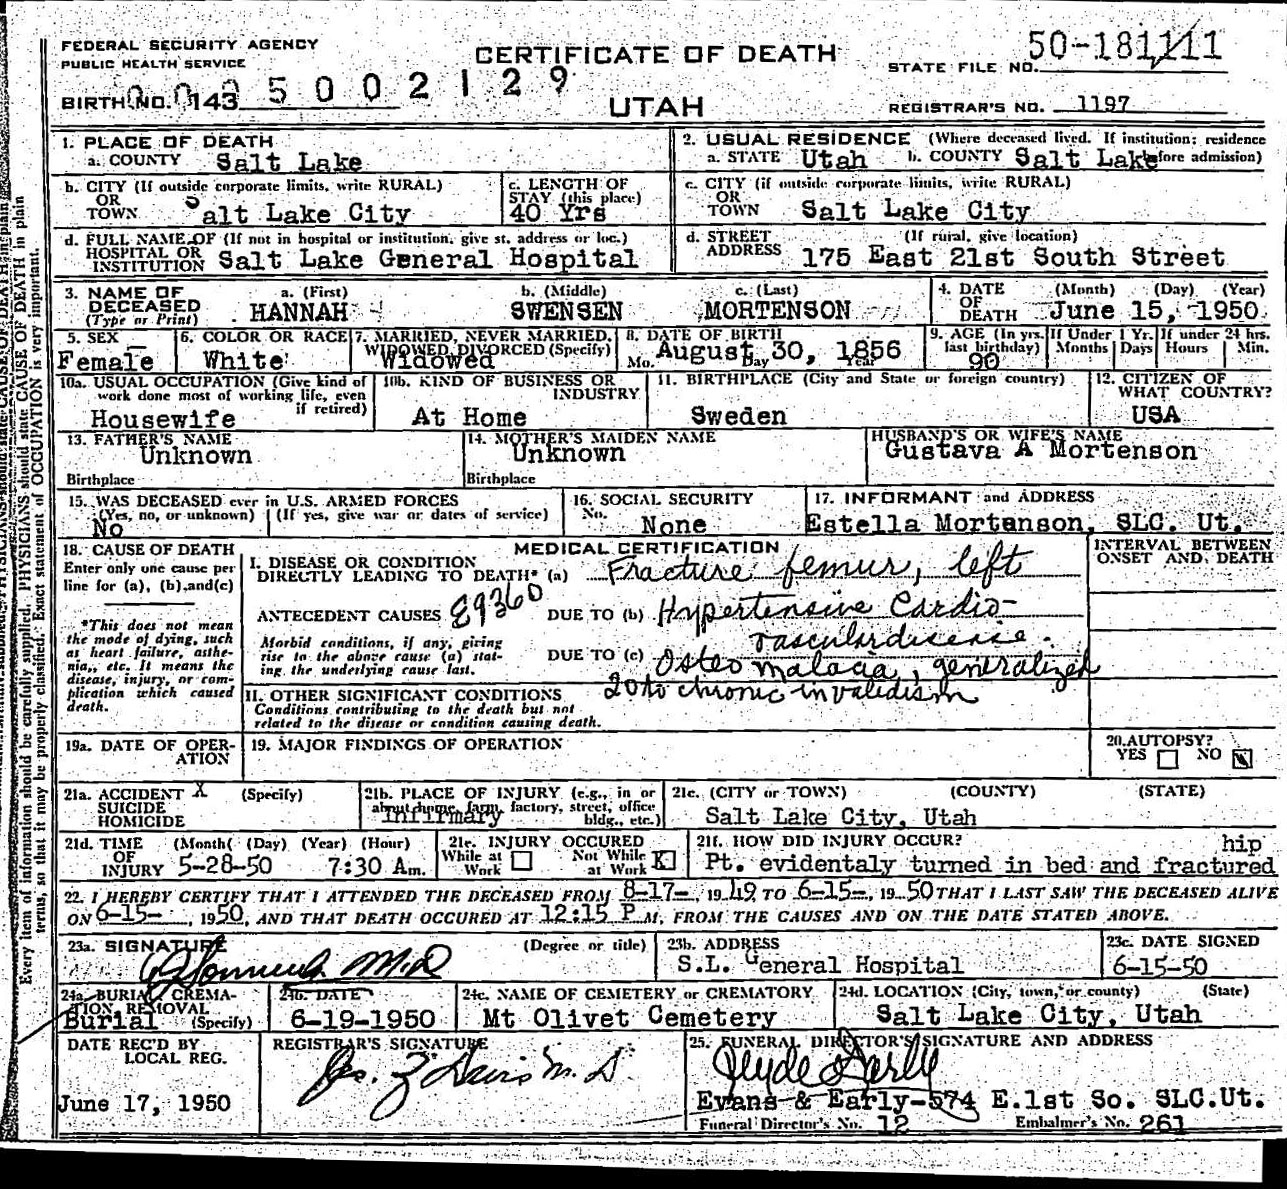 FEDERAL SECURITY AGENCY
PUBLIC HEALTH SERVICE
CERTIFICATE OF DEATH
UTAH
STATE FILE NO. 50-181111
BIRTH NO. 143
REGISTRAR'S NO. 1197
1. PLACE OF DEATH
a. COUNTY Salt Lake
2. USUAL RESIDENCE (Where deceased lived. If institution: residence before admission)
a. STATE Utah b. COUNTY Salt Lake
b. CITY (If outside corporate limits, write RURAL)
OR
TOWN Salt Lake City
c. LENGTH OF
STAY (this place)
40 Yrs
c. CITY (if outside corporate limits, write RURAL)
OR
TOWN Salt Lake City
d. FULL NAME OF (If not in hospital or institution, give st. address or loc.)
HOSPITAL OR
INSTITUTION Salt Lake General Hospital
d. STREET (If rural, give location)
ADDRESS 175 East 21st South Street
3. NAME OF
DECEASED
(Type or Print)
a. (First) b. (Middle) c. (Last)
HANNAH SWENSEN MORTENSON
4. DATE
OF
DEATH
(Month) (Day) (Year)
June 15, 1950
5. SEX
Female
6. COLOR OR RACE
White
7. MARRIED, NEVER MARRIED,
WIDOWED, DIVORCED (Specify)
Widowed
8. DATE OF BIRTH
Mo. Day Year
August 30, 1856
9. AGE (In yrs. last birthday)
90
If Under 1 Yr.
Months Days
If under 24 hrs.
Hours Min.
10a. USUAL OCCUPATION (Give kind of
work done most of working life, even
if retired)
Housewife
10b. KIND OF BUSINESS OR
INDUSTRY
At Home
11. BIRTHPLACE (City and State or foreign country)
Sweden
12. CITIZEN OF
WHAT COUNTRY?
USA
13. FATHER'S NAME
Unknown
Birthplace
14. MOTHER'S MAIDEN NAME
Unknown
Birthplace
HUSBAND'S OR WIFE'S NAME
Gustava A Mortenson
15. WAS DECEASED ever in U.S. ARMED FORCES
(Yes, no, or unknown) (If yes, give war or dates of service)
No
16. SOCIAL SECURITY
No. None
17. INFORMANT and ADDRESS
Estella Mortenson, SLC. Ut.
18. CAUSE OF DEATH
Enter only one cause per
line for (a), (b), and (c)
*This does not mean
the mode of dying, such
as heart failure, asthe-
nia, etc. It means the
disease, injury, or com-
plication which caused
death.
MEDICAL CERTIFICATION
INTERVAL BETWEEN
ONSET AND DEATH
I. DISEASE OR CONDITION
DIRECTLY LEADING TO DEATH* (a) Fracture femur, left
ANTECEDENT CAUSES E9360 DUE TO (b) Hypertensive Cardio-
vascular disease.
Morbid conditions, if any, giving
rise to the above cause (a) stat-
ing the underlying cause last.
DUE TO (c) Osteo malacia, generalized
2° to chronic invalidism
II. OTHER SIGNIFICANT CONDITIONS
Conditions contributing to the death but not
related to the disease or condition causing death.
19a. DATE OF OPER-
ATION
19. MAJOR FINDINGS OF OPERATION
20. AUTOPSY?
YES NO
21a. ACCIDENT X (Specify)
SUICIDE
HOMICIDE
21b. PLACE OF INJURY (e.g., in or
about home, farm, factory, street, office
bldg., etc.)
Infirmary
21c. (CITY or TOWN) (COUNTY) (STATE)
Salt Lake City, Utah
21d. TIME (Month) (Day) (Year) (Hour)
OF
INJURY 5-28-50 7:30 Am.
21e. INJURY OCCURED
While at Work Not While at Work X
21f. HOW DID INJURY OCCUR?
Pt. evidentaly turned in bed and fractured hip
22. I HEREBY CERTIFY THAT I ATTENDED THE DECEASED FROM 8-17-, 1949 TO 6-15-, 1950 THAT I LAST SAW THE DECEASED ALIVE
ON 6-15-, 1950, AND THAT DEATH OCCURED AT 12:15 P M, FROM THE CAUSES AND ON THE DATE STATED ABOVE.
23a. SIGNATURE (Degree or title)
M.D
23b. ADDRESS
S.L. General Hospital
23c. DATE SIGNED
6-15-50
24a. BURIAL, CREMA-
TION, REMOVAL
(Specify)
Burial
24b. DATE
6-19-1950
24c. NAME OF CEMETERY or CREMATORY
Mt Olivet Cemetery
24d. LOCATION (City, town, or county) (State)
Salt Lake City, Utah
DATE REC'D BY
LOCAL REG.
June 17, 1950
REGISTRAR'S SIGNATURE
M.D.
25. FUNERAL DIRECTOR'S SIGNATURE AND ADDRESS
Evans & Early-574 E.1st So. SLC.Ut.
Funeral Director's No. 12 Embalmer's No. 261